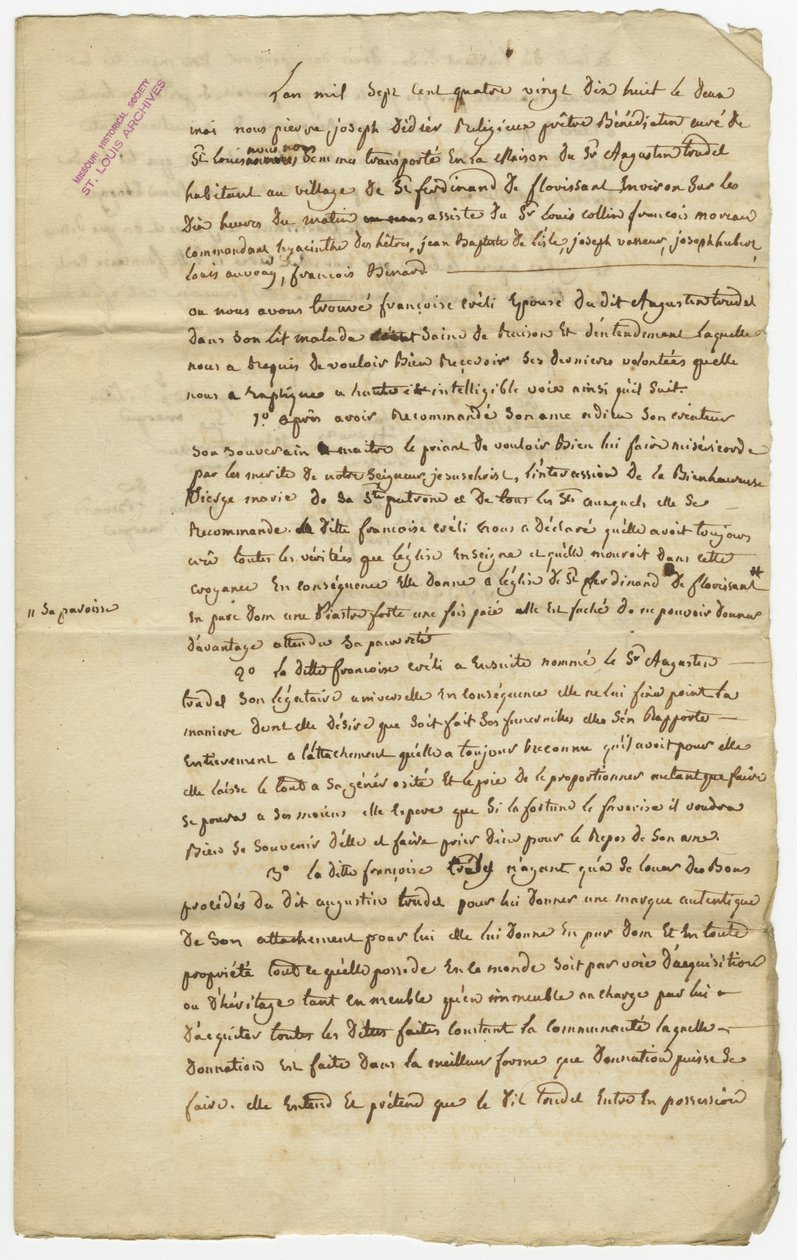 MISSOURI HISTORICAL SOCIETY
ST. LOUIS ARCHIVES
L'an mil sept cent quatre vingt dix huit le deux
mai nous pierre joseph didier Religieux prêtre Bénédictin curé de
St Louis nous nous sommes transporté En La Maison du Sr Augustin trudel
habitant au village De St ferdinand De florissant Environ sur les
Dix heures du matin assisté du Sr Louis collin francois moreau
commandant hyacinthe des hêtres, jean Baptiste De Lisle, joseph vasseur, joseph hubert,
Louis auvray, françois Bénard
ou nous avons trouvé françoise créli Epouse du dit Augustin trudel
dans son lit malade Saine de Raison Et d'entendement laquelle
nous a Requis de vouloir Bien Recevoir ses dernieres volontées qu'elle
nous a Expliqué a haute et intelligible voix ainsi qu'il suit.
1o après avoir Recommandé son ame a dieu son créateur
son souverain maitre le priant de vouloir Bien lui faire miséricorde
par les merite de notre Seigneur jesus christ, l'intercession de la Bienheureuse
Vierge marie de sa Ste patrone et De tous les Sts auxquels elle se
Recommande. La Ditte françoise créli nous a Déclaré qu'elle avoit toujours
crû toutes les vérités que l'église Enseigne et qu'elle mouroit dans cette
croyance En conséquence Elle donne a l'église de St ferdinand De florissant
" Sa paroisse
En pure Dom une Piastre forte une fois paié elle est faché de ne pouvoir donner
D'avantage attendu sa pauvreté
2o la ditte françoise créli a Ensuite nommé le Sr Augustin
trudel son légataire universelle En conséquence elle ne lui fixe point la
maniere dont elle désire que soit fait ses funerailles elle s'en Rapporte
Entierement a l'attachement qu'elle a toujour Reconnu qu'il avoit pour elle
elle laisse le tout a sa générosité Et le prie de le proportionner autant que faire
se poura a ses moiens elle Espere que si la fortune le favorise il voudra
Bien se souvenir d'elle et faire prier Dieu pour le Repos de son ame.
3o la ditte françoise n'ayant qu'a se louer des Bons
procédés du dit augustin trudel pour lui donner une marque autentique
De son attachement pour lui elle lui donne En pur dom Et En toute
propriété tout ce qu'elle possede En ce monde soit par voie D'acquisition
ou d'héritage tant En meuble qu'en immeuble a charge par lui
D'acquiter toutes les Dettes faites constant la communauté laquelle
Donnation est faite dans la meilleur forme que Donnation puisse se
faire. elle Entend Et prétend que le dit trudel Entre En possession